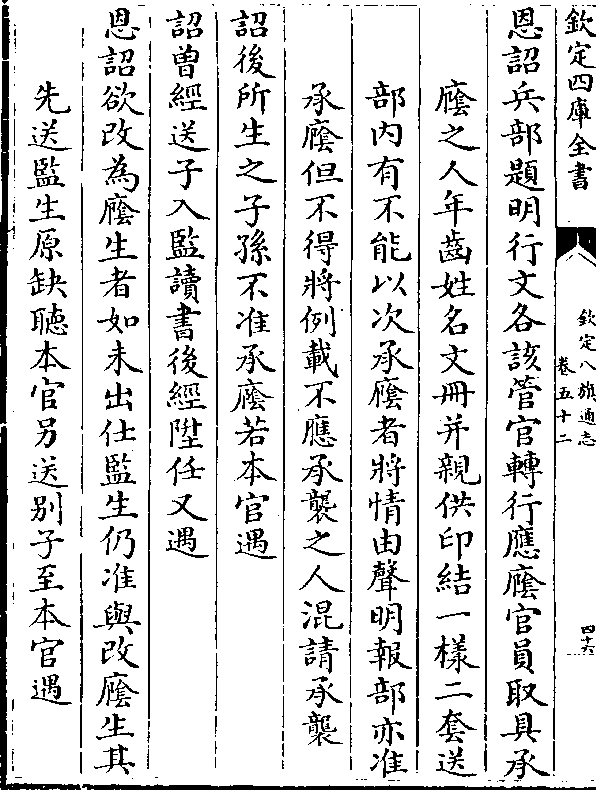 欽定四庫全書
欽定八旗通志
卷五十二
四十六
恩詔兵部題明行文各該管官轉行應廕官員取具承
廕之人年齒姓名文冊并親供印結一樣二套送
部内有不能以次承廕者將情由聲明報部亦准
承廕但不得將例載不應承襲之人混請承襲
詔後所生之子孫不准承廕若本官遇
詔曾經送子入監讀書後經陞任又遇
恩詔欲改為廕生者如未出仕監生仍准與改廕生其
先送監生原缺聽本官另送别子至本官遇